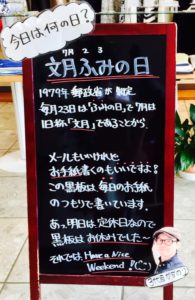 今日は何の日?
7月23
文月ふみの日
1979年 郵政省が制定
毎月23日は「ふみの日」で7月は
旧称「文月」であることから
メールもいいけれど
お手紙書くのもいいですよ!
この黒板は毎日のお手紙
のつもりで書いています。
あっ、明日は定休日なので
黒板はお休みでした〜
それでは、Have a Nice
Weekend